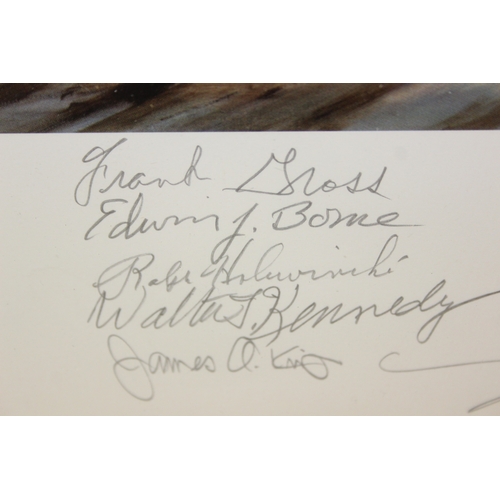 Frank Gross
Edwin J. Borne
Walter T. Kennedy
James A. King